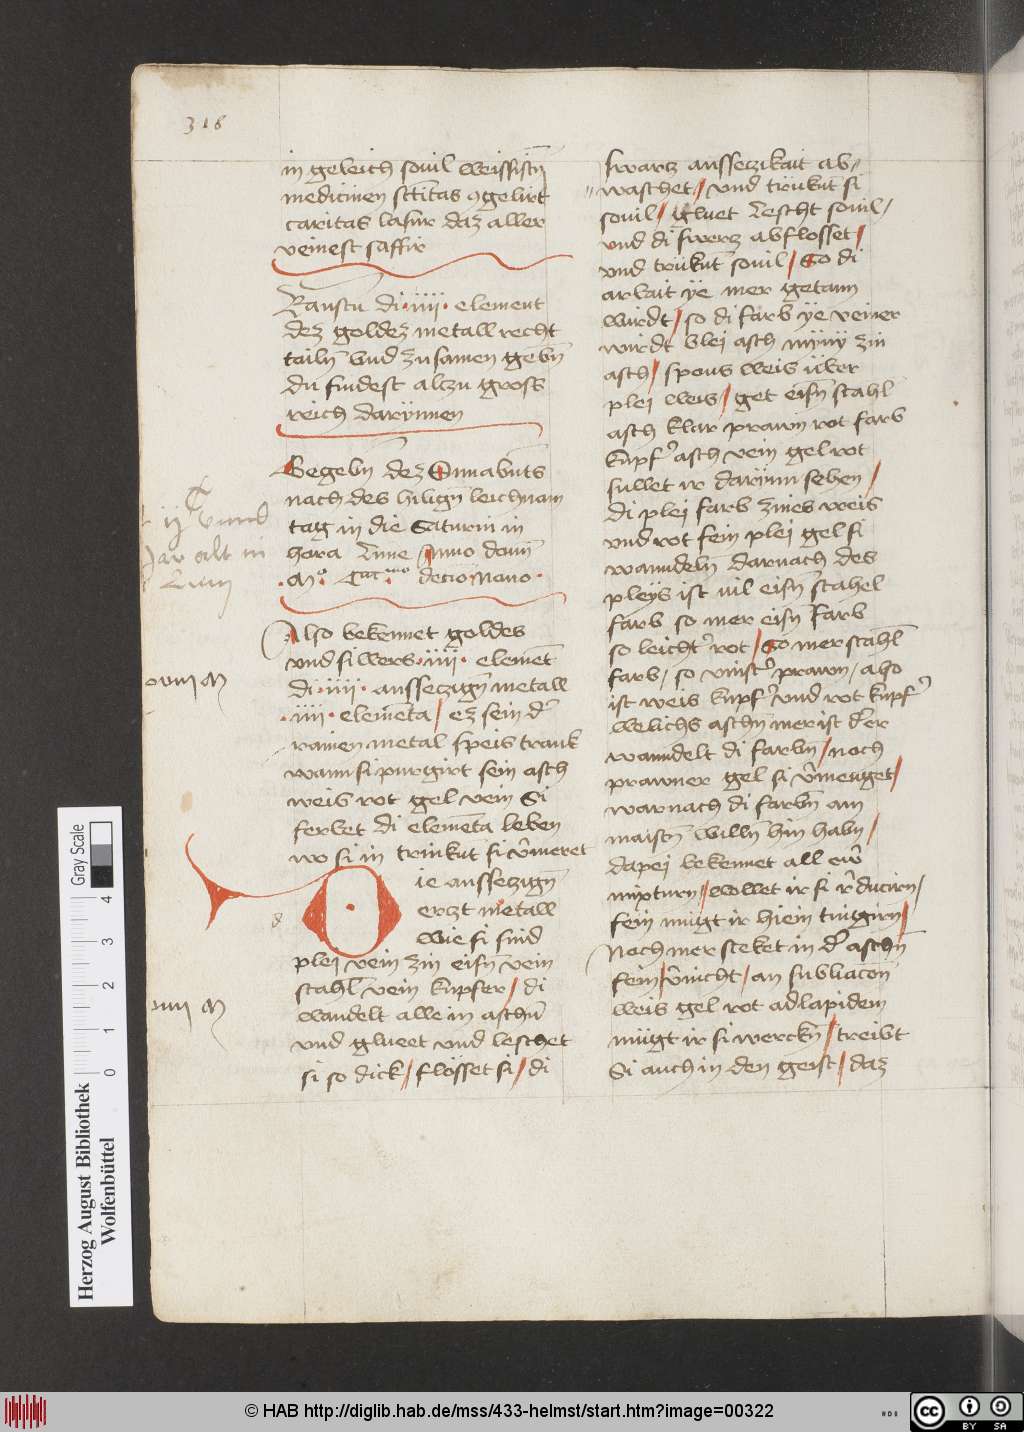 318
in geleich souil weissistn̄
medicinen sctītas ꝯgelirt
caritas lasur daz aller
veinest saffir
Kanstu di · iiii · element
dez goldez metall recht
tailn̄ vnd zusamen gebn̄
du findest alczu gross
reich darynnen
Gegebn dez Sunabuts
nach des hilign̄ leichnam
tag in die Saturni in
hora Lune Anno domī
decīo Nono ·
Also bekennet goldes
vnd silbers · iiii · elemēt
di · iiii · aussetzign̄ metall
· iiii · elemēta / ez sein d'
rainen metal speis trank
wann si purgirt sein asch
weis rot gel vein Si
ferbet di elemēta leben
wo si in trinkut si v̄meret
Die aussetzign̄
erczt metall
wie si sind
plei vein zin eisn̄ vein
stahl vein kupfer / di
wandelt alle in aschn̄
vnd glueet vnd leschet
si so dick / flösset si / di
swarz aussetzikait ab=
waschet / vnd trükut si
souil / gluet Lescht souil /
vnd di swerz abflosset /
vnd trükut souil / So di
arbait ye mer getann
wirdt / so di farb ye veiner
wirdt blei asch zin
asch / spons weis über
plei weis / get eisn̄ stahl
asch klar prawn rot farb
kupf' asch vein gelrot
sullet ir darynn sehen /
di plei farb zines weis
vnd rot sein plei gel si
wanndeln̄ darnach des
pleys ist vil eisn̄ stahel
farb so mer eisn farb
so leicht' rot / So mer stahl
farb / so vinst' prawn / also
ist weis kupf' vnd rot kupf'
welichs aschn mer ist der
wanndelt di farbn̄ / noch
prawner gel si v̄menget /
warnach di farbn̄ am
maistn̄ willn̄ hin habn /
dapei bekennet all ew̄
mixturn / wollet ir si r̄ducirn /
sein mügt ir hiein tingirn /
Noch mer steket in d' aschn̄
sein / v̄nicht / an subliacōn
weis gel rot ad lapidem
mügt ir si werckn̄ / treibt
Si auch in den geist / daz
Herzog August Bibliothek
Wolfenbüttel
Gray Scale
0 1 2 3 4
© HAB http://diglib.hab.de/mss/433-helmst/start.htm?image=00322
HDB
cc BY SA